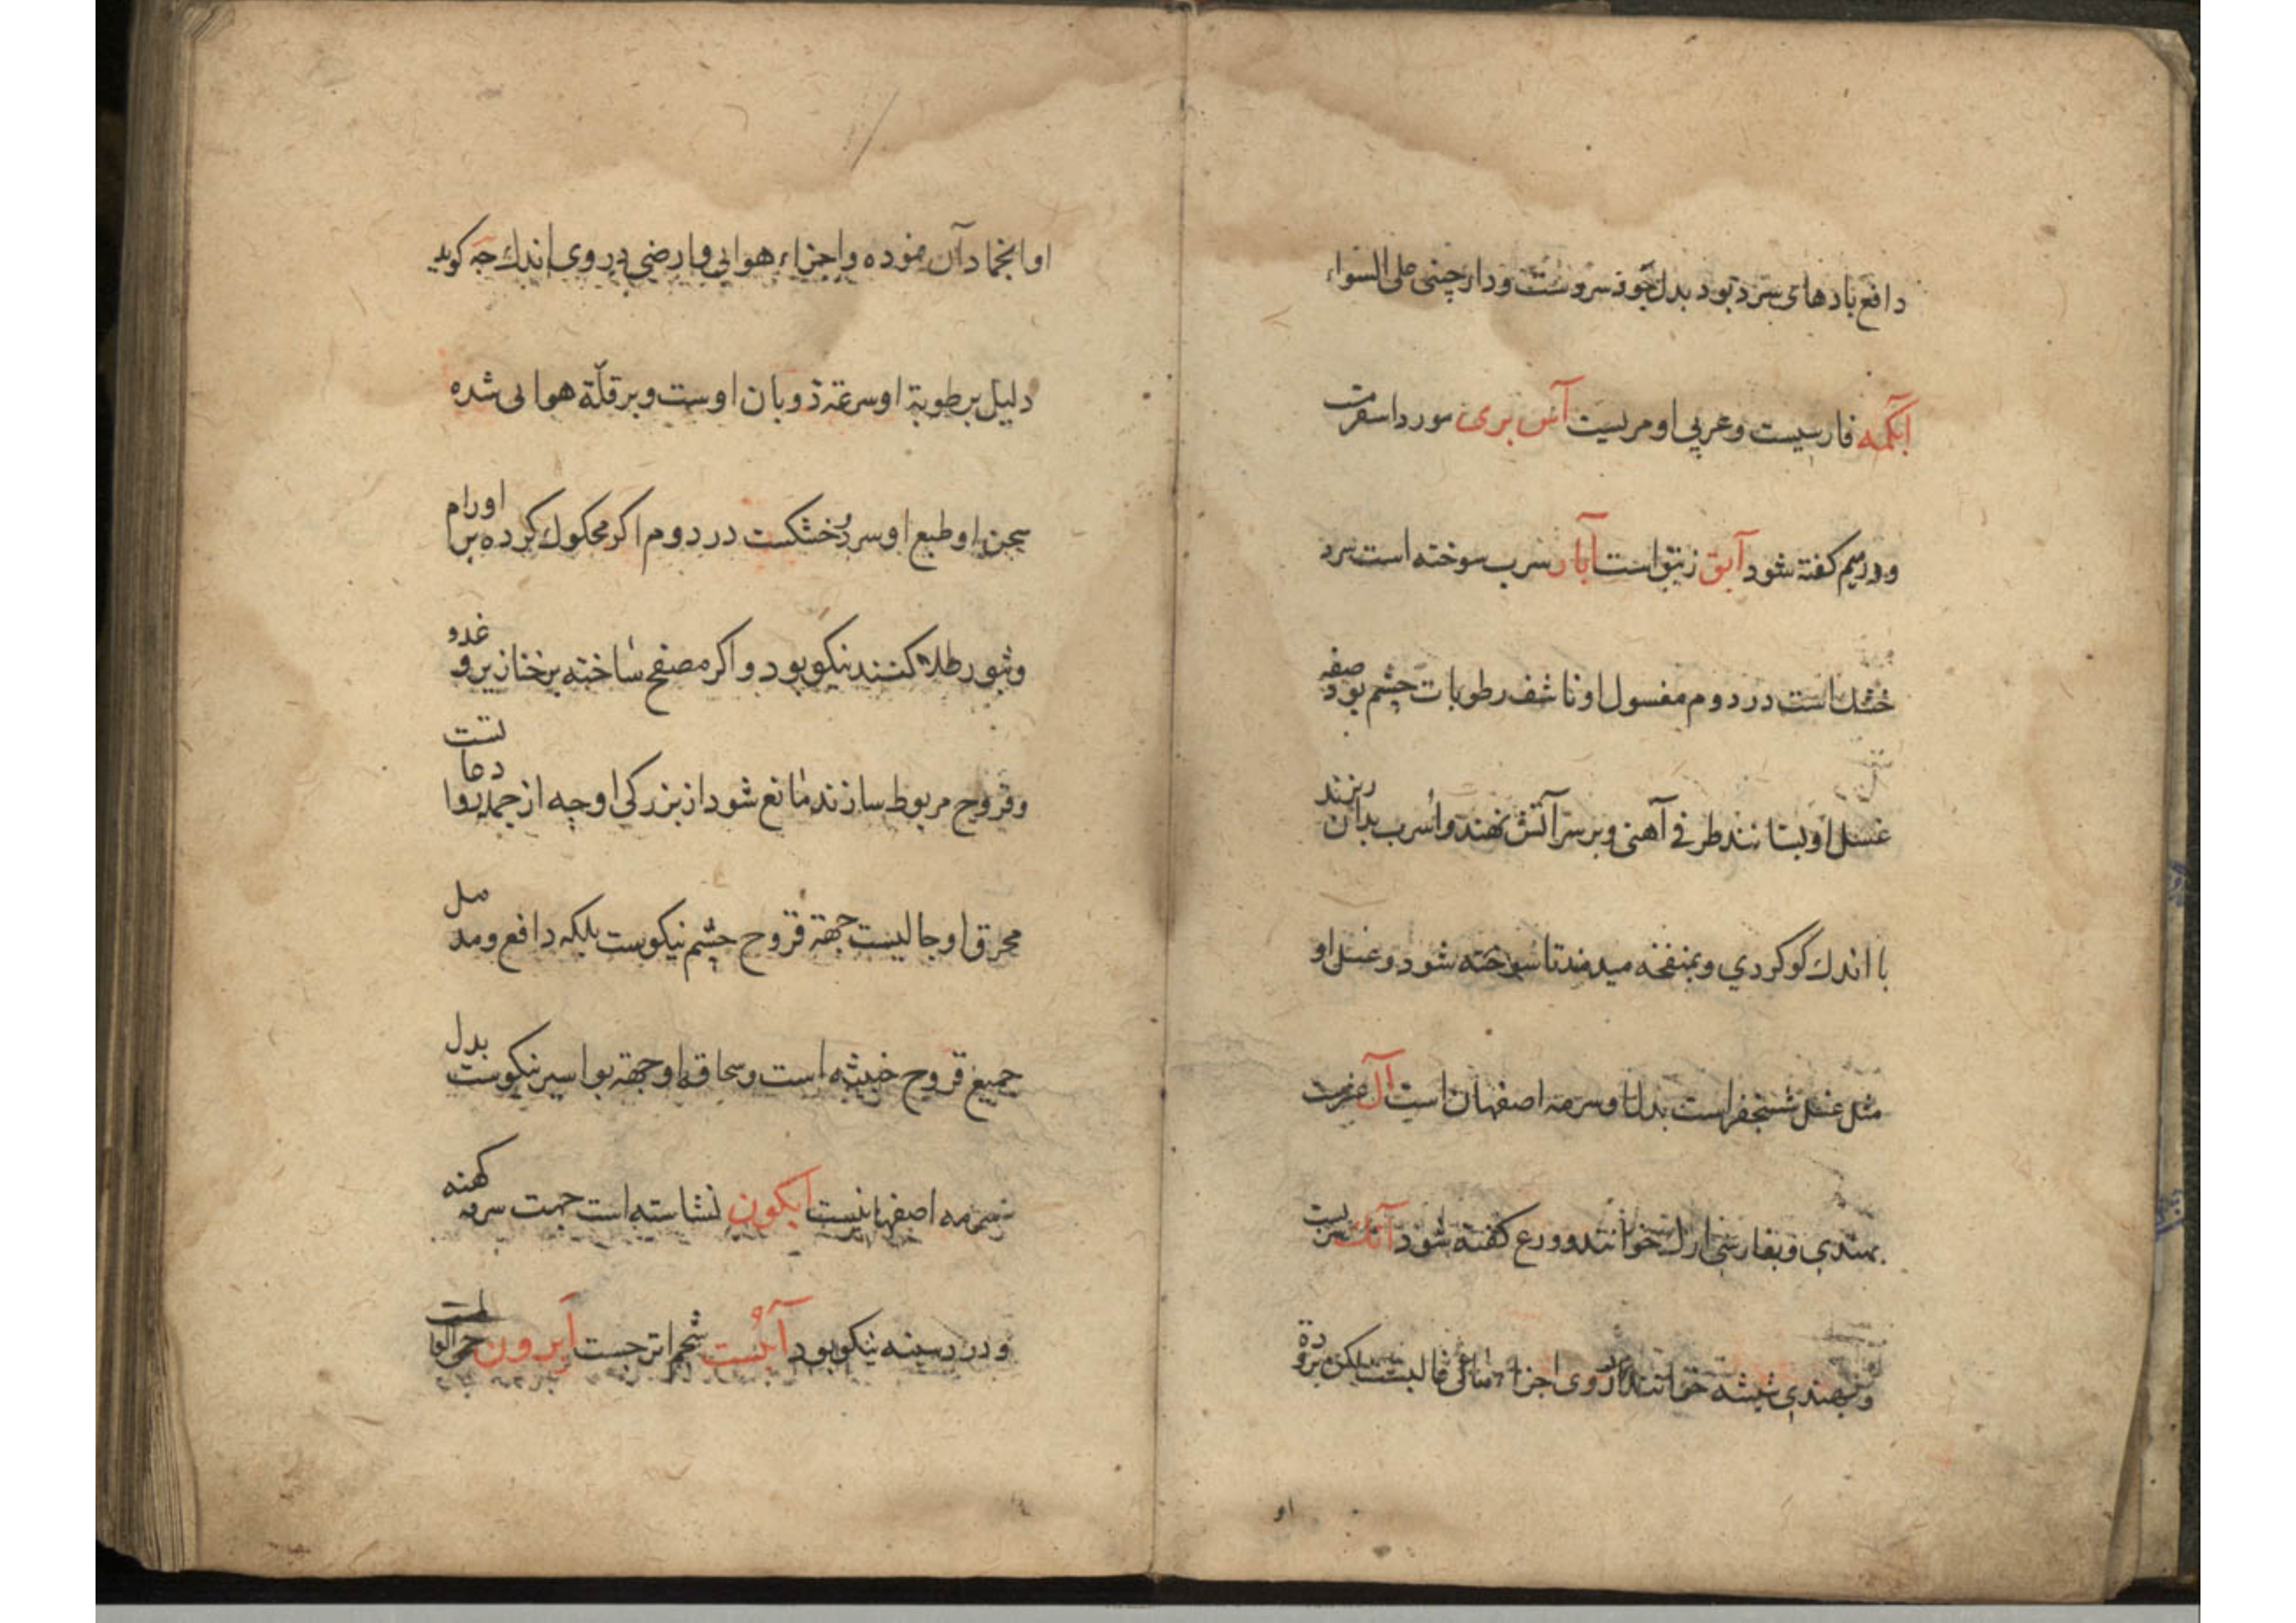 دافع بادهای سرد بود بدل جوذ سروست ودارچینی علی السواء
آبکمه فارسیست وعربی او مریست آس بری مورد اسفرمست
ودر میم کفته شود آبق زیبق است آبار سرب سوخته است سرد
خشک است در دوم مغسول او ناشف رطوبات چشم بود صفه
غسل او بستانند ظرفی آهنی وبر سر آتش نهند واسرب بدان ریزند
با اندك کوکردی وبمنفخه میدمند تا سوخته شود وغسل او
مثل غسل شنجفر است بدل او سرمه اصفهان است آل
بهندی وبفارسی ارك خوانند ودرع کفته شود آنك سربیست
وبهندی شیشه خوانند از روی اجزاء مائی غالبست لیکن برودة
او
او انجماد آن نموده واجزاء هوایی وارضی در وی اندك چه کوید
دلیل بر رطوبة او سرعة ذوبان اوست وبر قلّة هوایی شده
او طبع او سرد وخشکست در دوم اکر محکوك کرده بر اورام
وبثور طلاء کنند نیکو بود واکر مصفح ساخته بر خنازیر وغدو
وقروح مربوط سازند مانع شود از بزرکی او چه از جمله روادعات
محرق او جالیست جهة قروح چشم نیکوست بلکه دافع ومدمل
جمیع قروح خبیثه است وسحاقه او جهة بواسیر نیکوست بدل
سرمه اصفهانیست ابکون نشاسته است جهت سرفه کهنه
ودرد سینه نیکو بود آبُست شحم اترجست آبرون حی العالمست